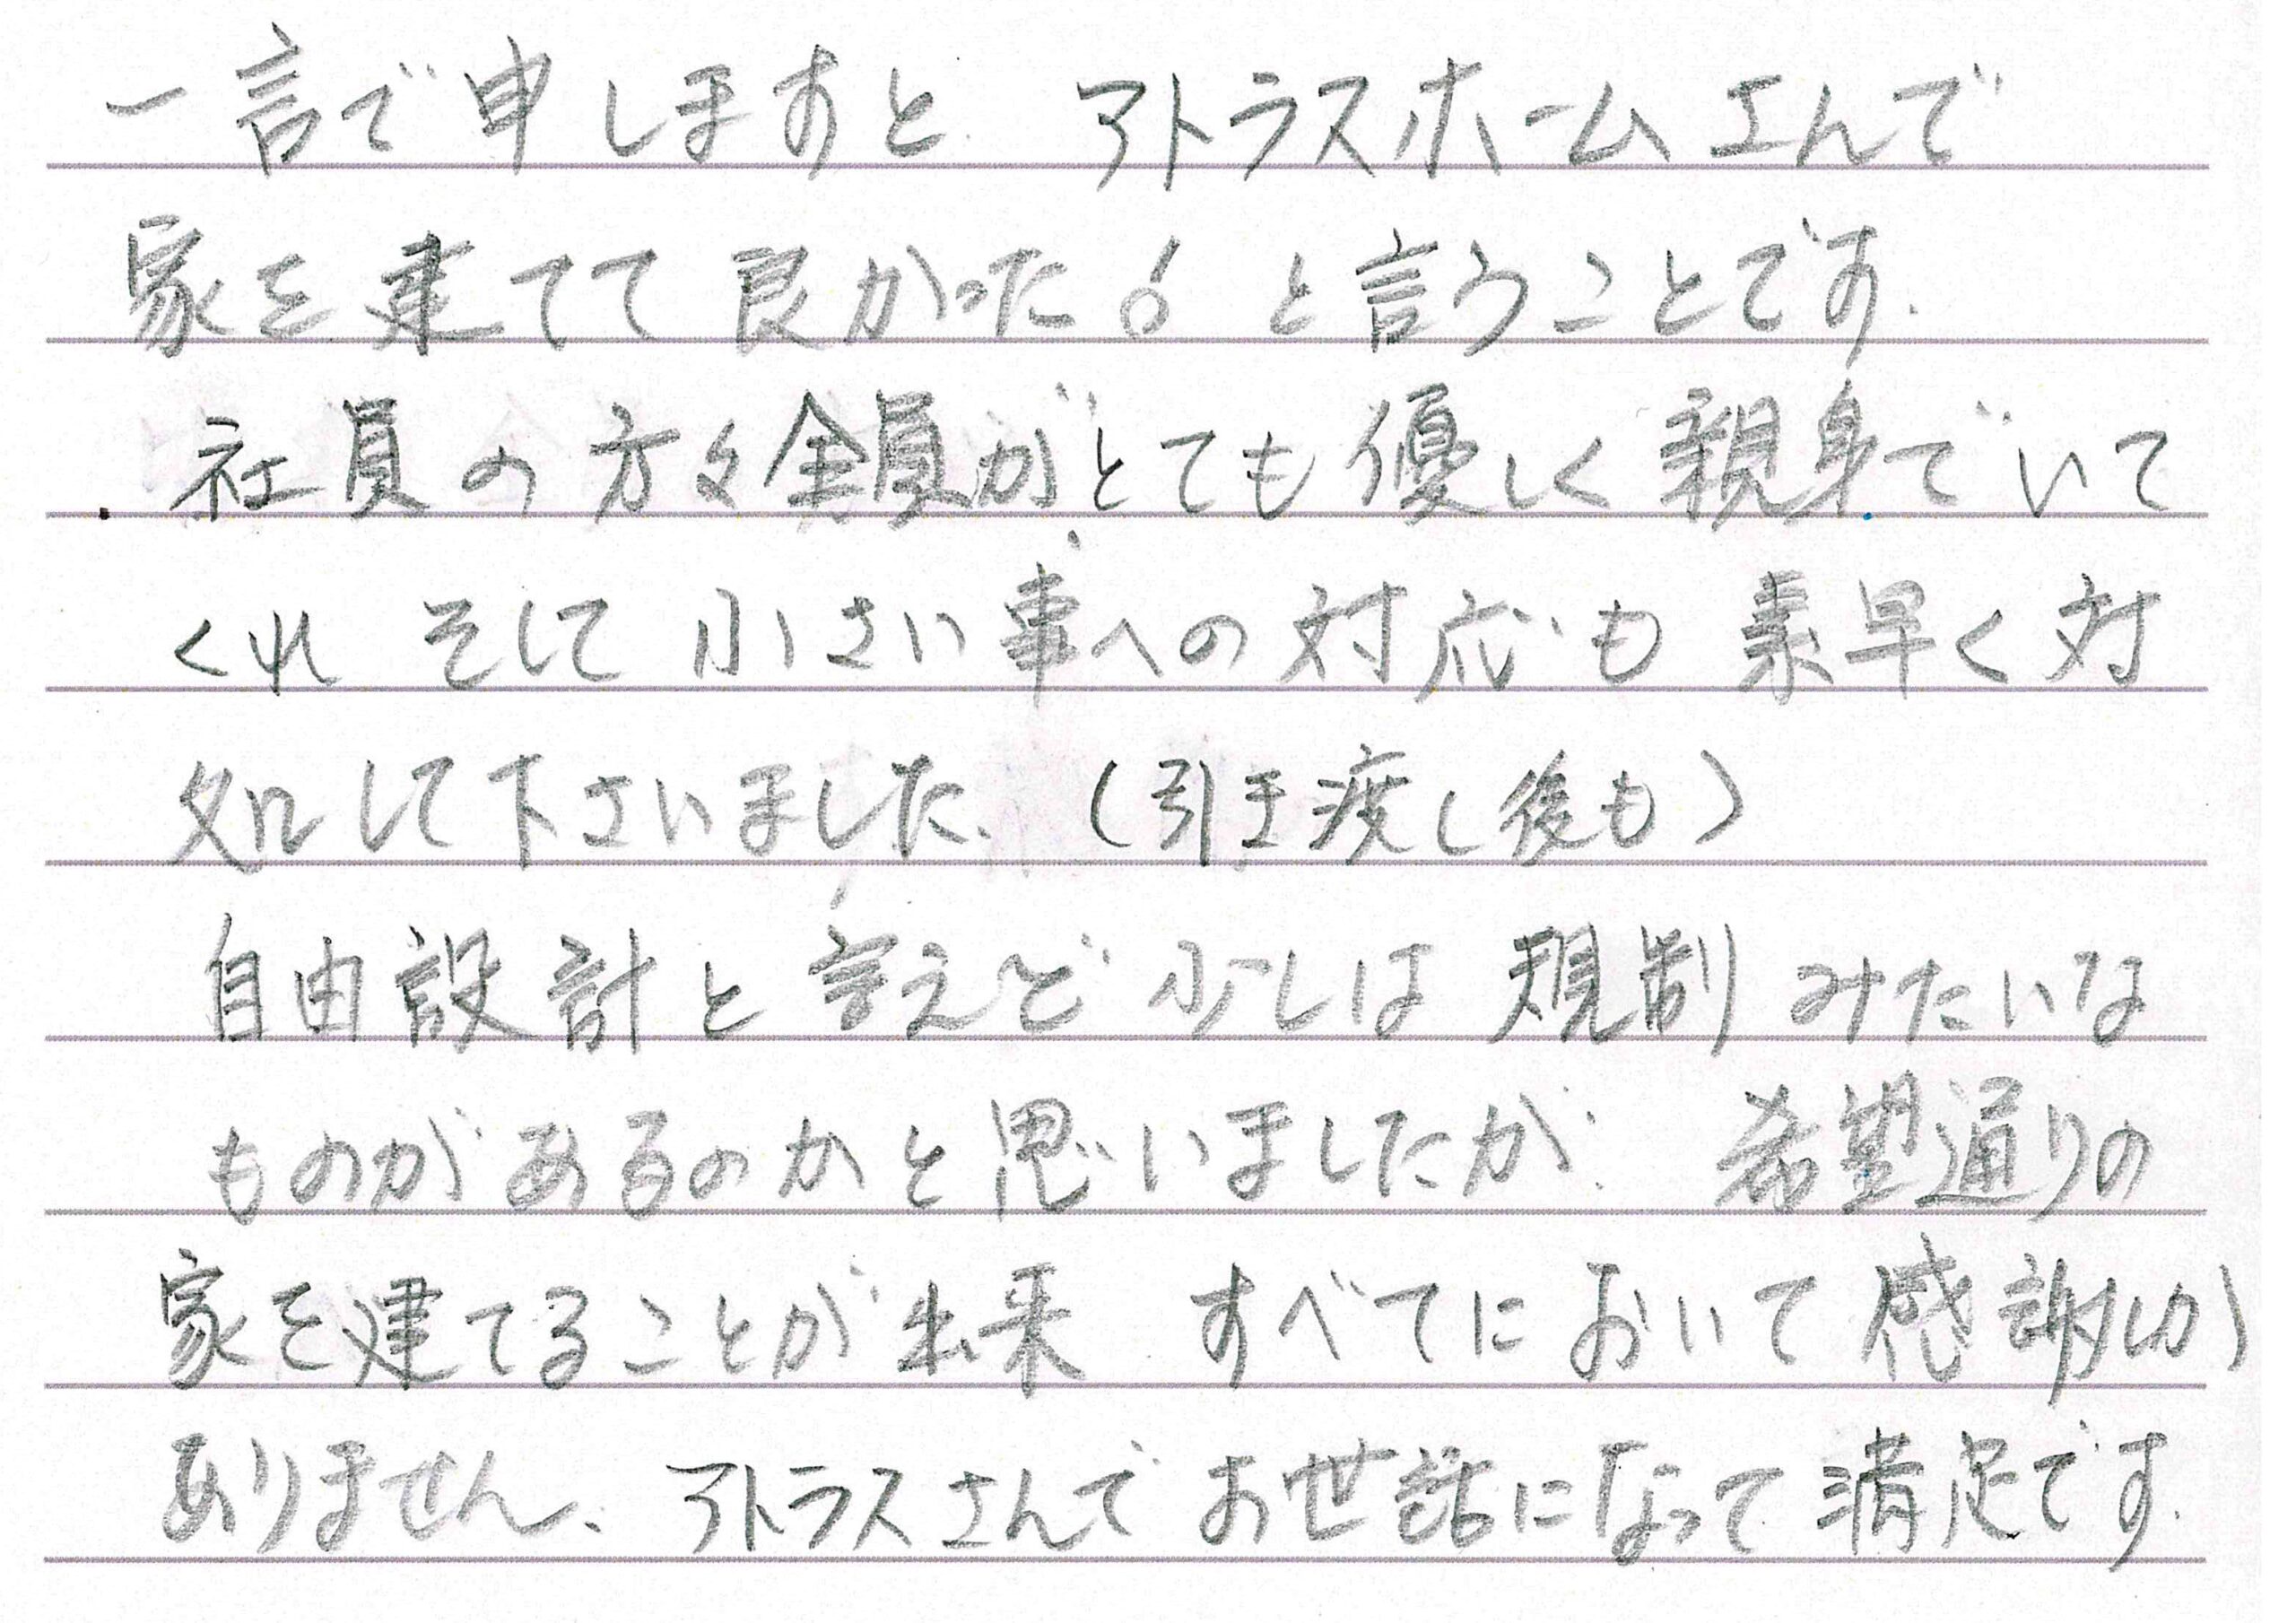 一言で申しますと アトラスホームさんで
家を建てて良かった!と言うことです.
社員の方々全員がとても優しく親身でいて
くれ そして 小さい事への対応も 素早く対
処して下さいました.(引き渡し後も)
自由設計と言えど 少しは規制みたいな
ものがあるのかと思いましたが. 希望通りの
家を建てることが出来 すべてにおいて感謝しか
ありません. アトラスさんでお世話になって満足です.